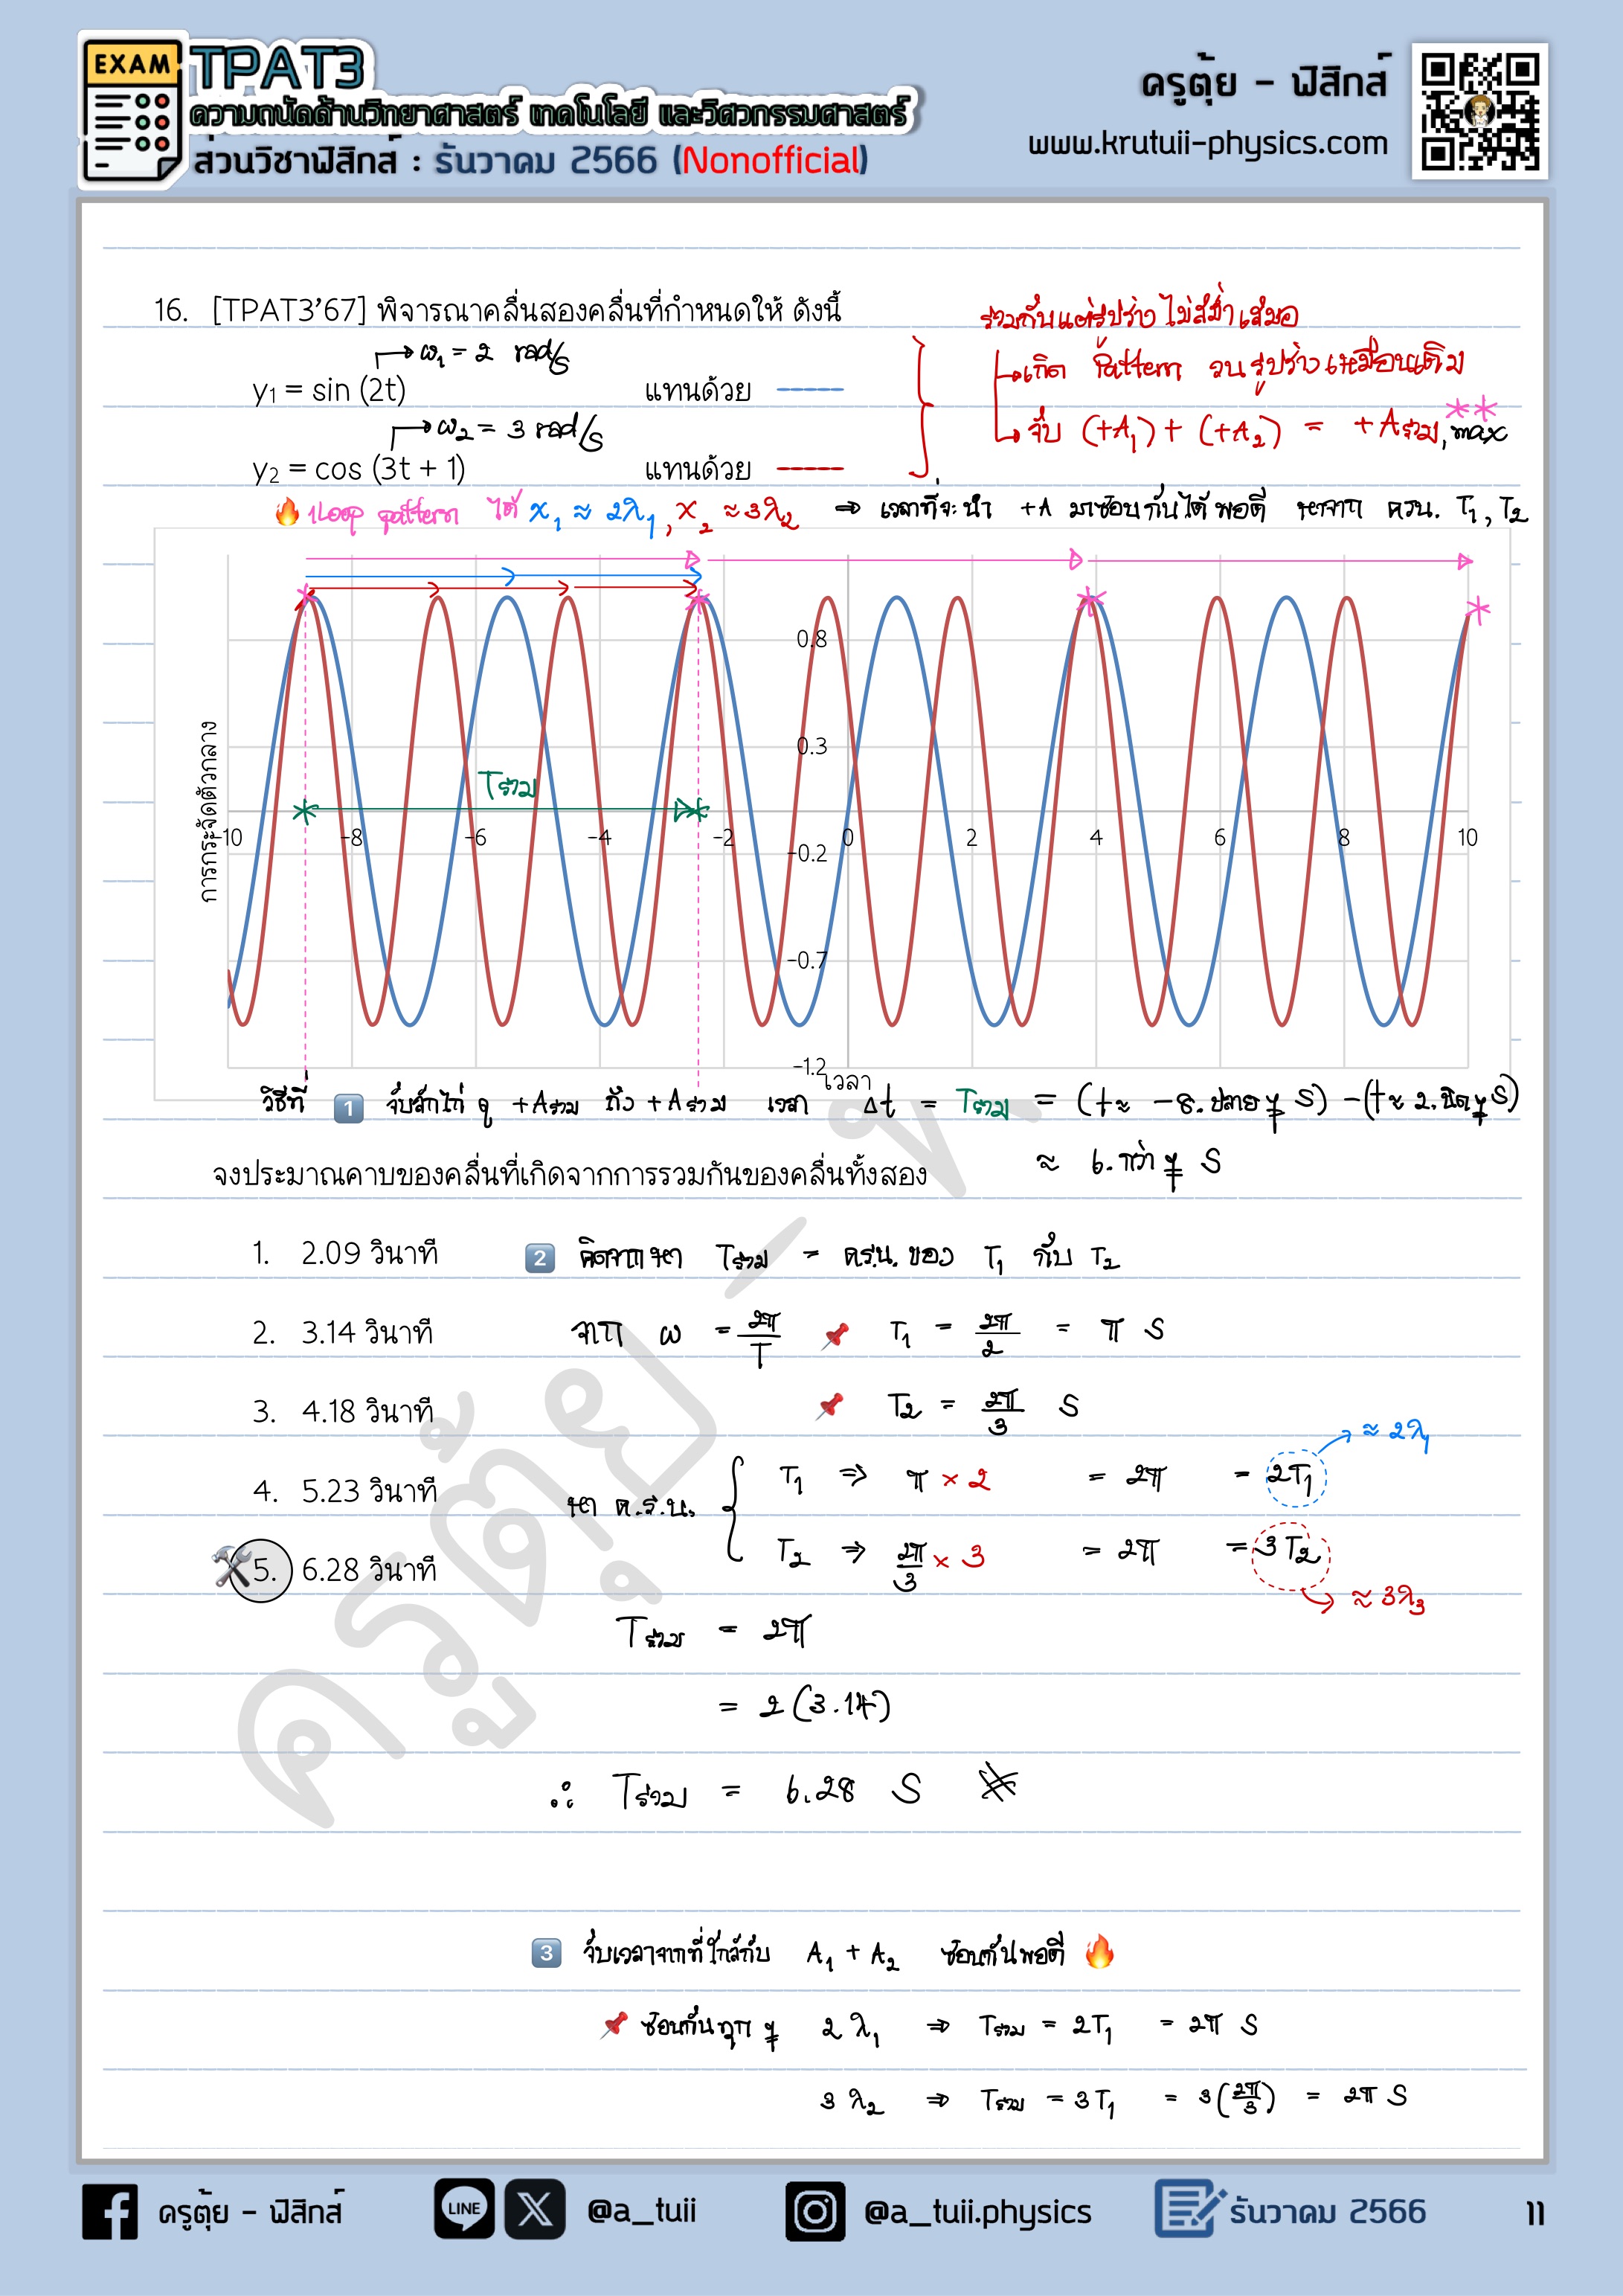 EXAM
TPAT3
ความถนัดด้านวิทยาศาสตร์ เทคโนโลยี และวิศวกรรมศาสตร์
ส่วนวิชาฟิสิกส์ : ธันวาคม 2566 (Nonofficial)
ครูตุ้ย - ฟิสิกส์
www.krutuii-physics.com
16. [TPAT3'67] พิจารณาคลื่นสองคลื่นที่กำหนดให้ ดังนี้
รวมกันแต่รูปร่างไม่สม่ำเสมอ
ω₁ = 2 rad/s
เกิด Pattern จนรูปร่างเหมือนเดิม
y₁ = sin (2t) แทนด้วย
จับ (+A₁) + (+A₂) = +Aรวม, max
ω₂ = 3 rad/s
y₂ = cos (3t + 1) แทนด้วย
1 Loop pattern ได้ x₁ ≈ 2λ₁, x₂ ≈ 3λ₂ ⇒ เวลาที่จะนำ +A มาซ้อนกันได้พอดี หาจาก ครน. T₁, T₂
การกระจัดตัวกลาง
0.8
0.3
Tรวม
-10 -8 -6 -4 -2 0 2 4 6 8 10
-0.2
-0.7
-1.2
เวลา
วิธีที่ 1 จับสักไก่ ดู +Aรวม ถึง +Aรวม เวลา Δt = Tรวม = (t ≈ -8.ปลายๆ s) - (t ≈ 2.นิดๆ s)
≈ 6.กว่าๆ s
จงประมาณคาบของคลื่นที่เกิดจากการรวมกันของคลื่นทั้งสอง
1. 2.09 วินาที
2 คิดจากหา Tรวม = ครน. ของ T₁ กับ T₂
2. 3.14 วินาที
จาก ω = 2π/T T₁ = 2π/2 = π s
3. 4.18 วินาที
T₂ = 2π/3 s
≈ 2λ₁
4. 5.23 วินาที
หา ค.ร.น. T₁ ⇒ π × 2 = 2π = 2T₁
5. 6.28 วินาที
T₂ ⇒ 2π/3 × 3 = 2π = 3T₂
≈ 3λ₃
Tรวม = 2π
= 2 (3.14)
∴ Tรวม = 6.28 s
3 จับเวลาจากที่ใกล้กับ A₁ + A₂ ซ้อนกันพอดี
ซ้อนกันทุกๆ 2λ₁ ⇒ Tรวม = 2T₁ = 2π s
3λ₂ ⇒ Tรวม = 3T₁ = 3(2π/3) = 2π s
ครูตุ้ย -
ครูตุ้ย - ฟิสิกส์
LINE
@a_tuii
@a_tuii.physics
ธันวาคม 2566
11